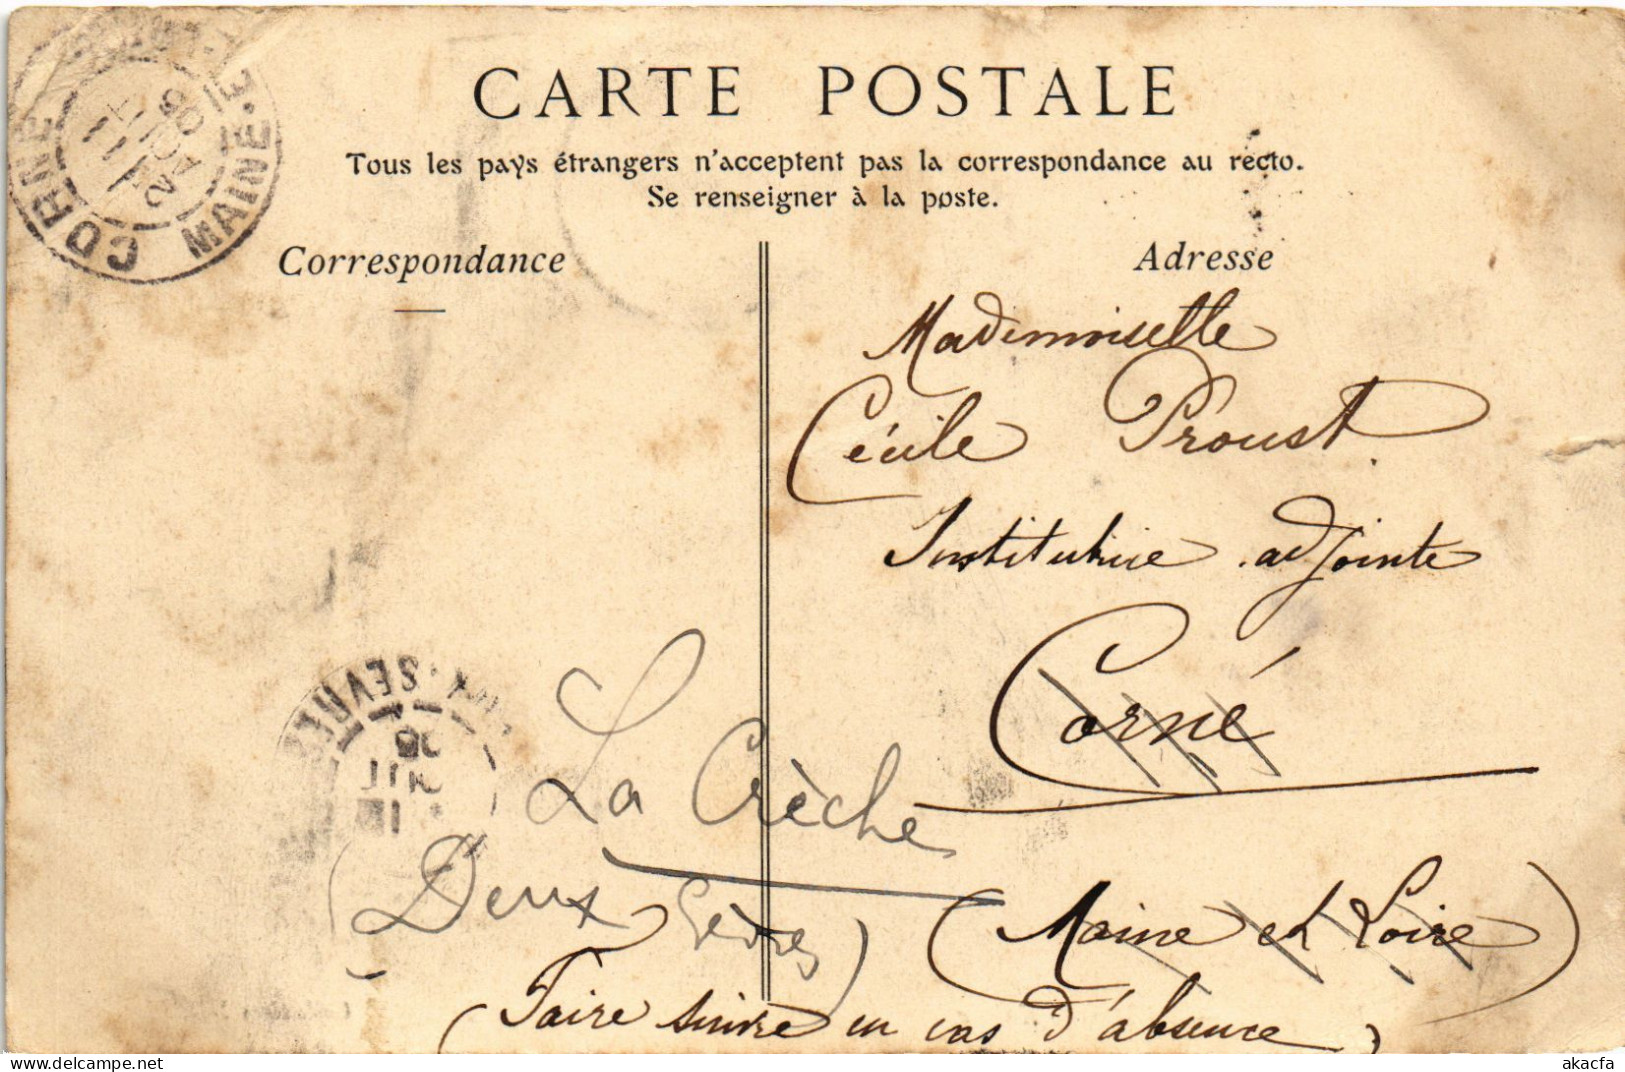 CARTE POSTALE
Tous les pays étrangers n'acceptent pas la correspondance au recto.
Se renseigner à la poste.
CORNE MAINE-E
2 AOUT 06
Correspondance
Adresse
Mademoiselle
Cécile Proust
Institutrice adjointe
Corné
La Crèche
(Deux Sèvres)
(Maine et Loire)
(Faire suivre en cas d'absence)
SEVRE
akacfa